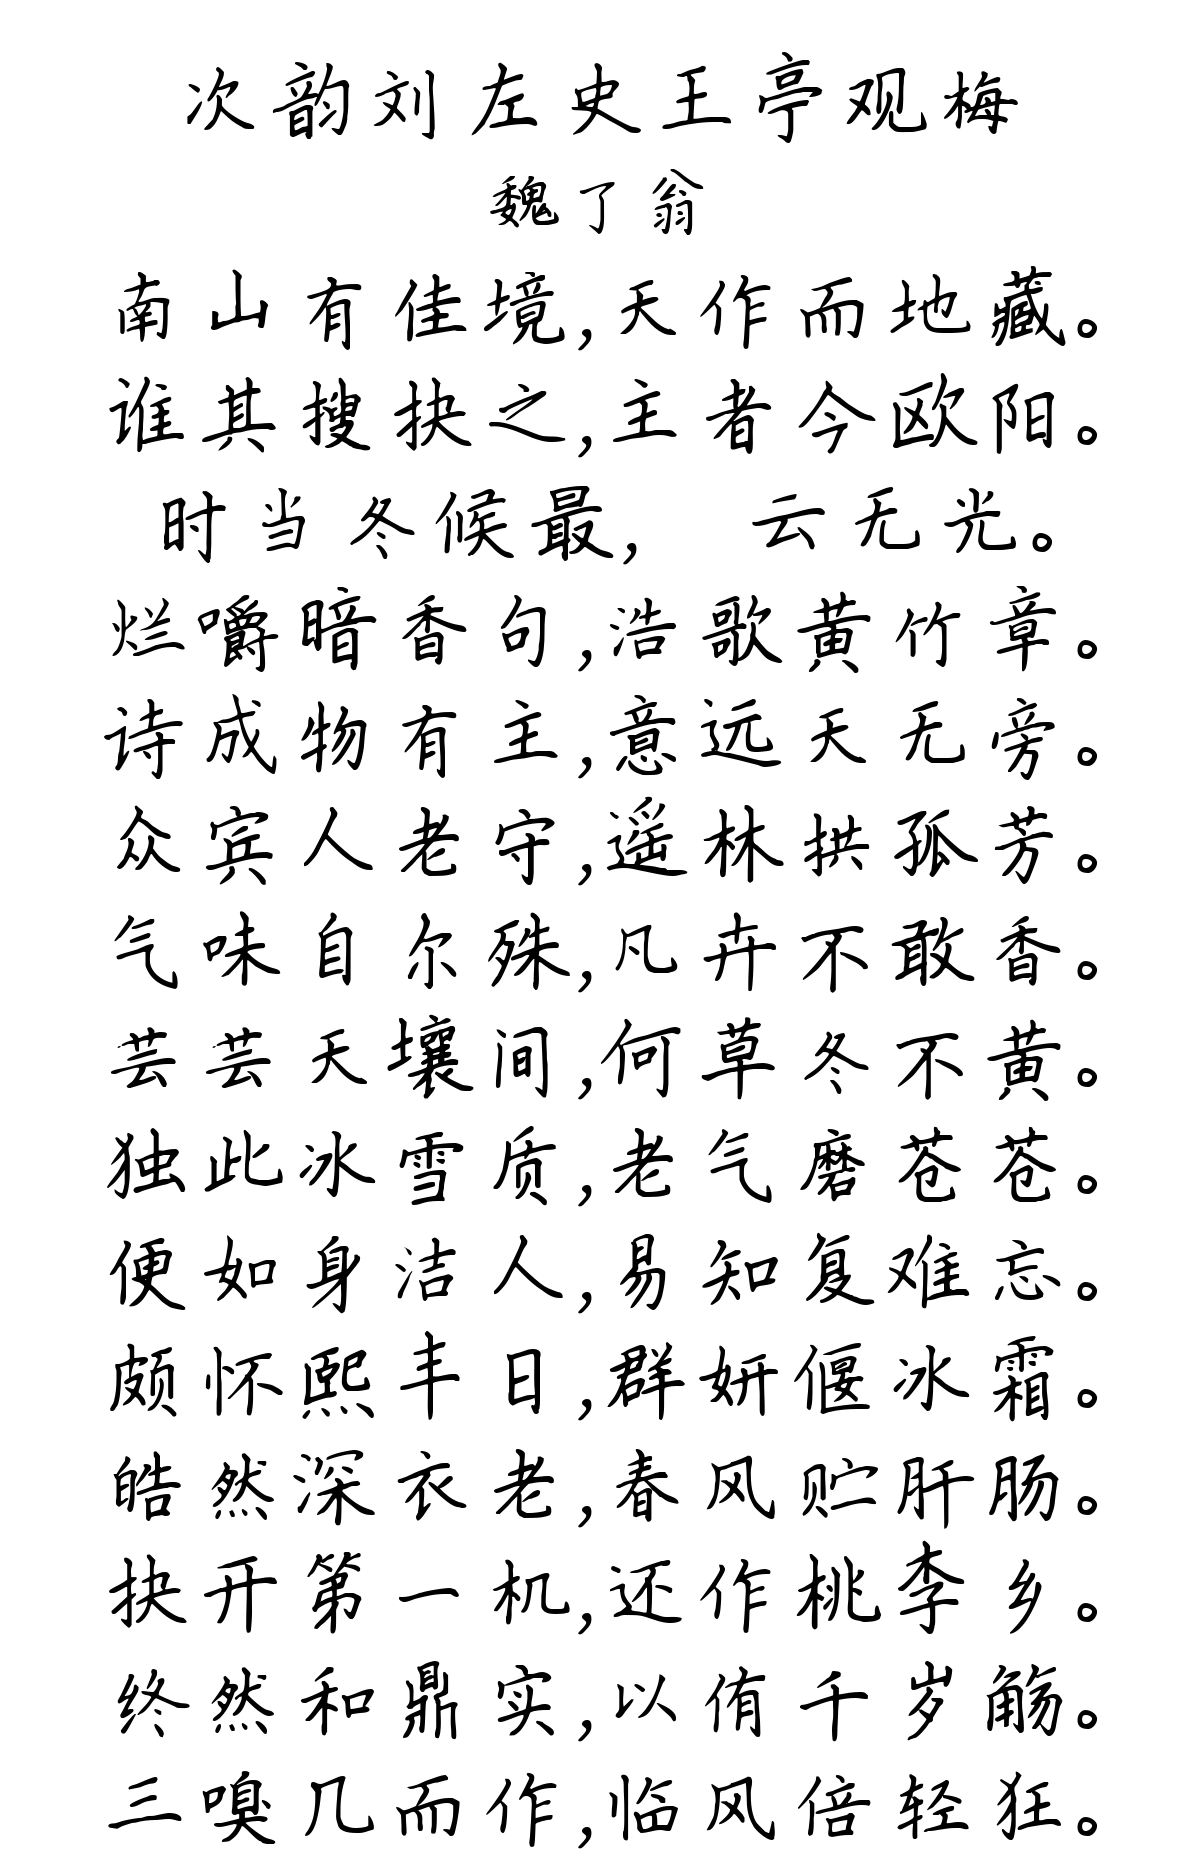 次韵刘左史王亭观梅
魏了翁
南山有佳境,天作而地藏。
谁其搜抉之,主者今欧阳。
时当冬候最, 云无光。
烂嚼暗香句,浩歌黄竹章。
诗成物有主,意远天无旁。
众宾人老守,遥林拱孤芳。
气味自尔殊,凡卉不敢香。
芸芸天壤间,何草冬不黄。
独此冰雪质,老气磨苍苍。
便如身洁人,易知复难忘。
颇怀熙丰日,群妍偃冰霜。
皓然深衣老,春风贮肝肠。
抉开第一机,还作桃李乡。
终然和鼎实,以侑千岁觞。
三嗅几而作,临风倍轻狂。